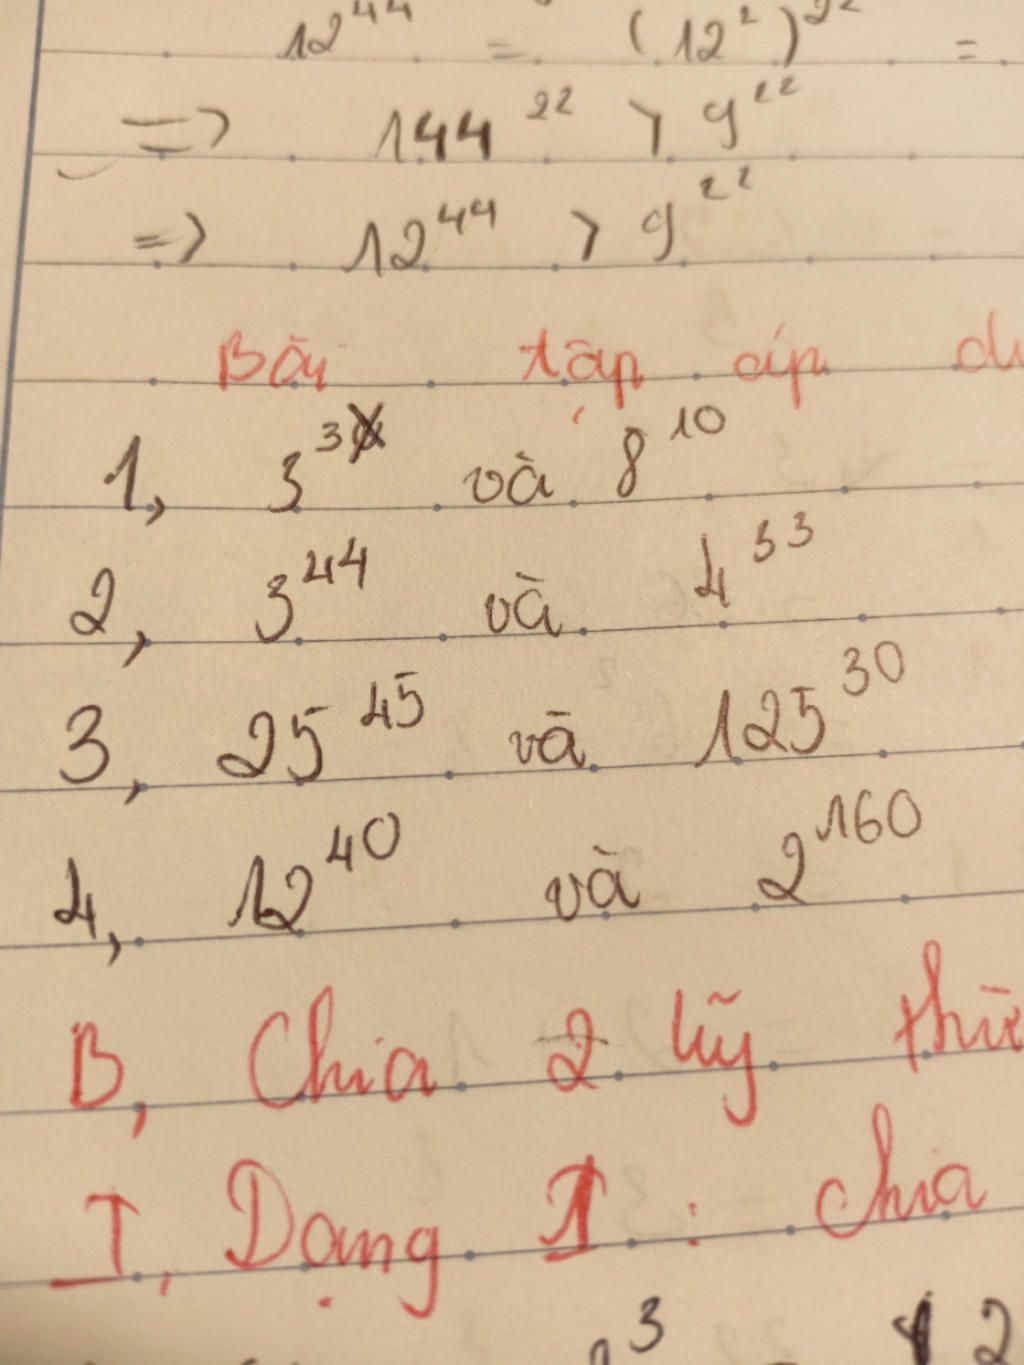 12⁴⁴ = (12²)²² =
=> 144²² > 9²²
=> 12⁴⁴ > 9²²
Bài tập áp
1, 3³ và 8¹⁰
2, 3⁴⁴ và 4³³
3, 25⁴⁵ và 125³⁰
4, 12⁴⁰ và 2¹⁶⁰
B, Chia 2 lũy
I, Dạng 1 : chia
³ 12